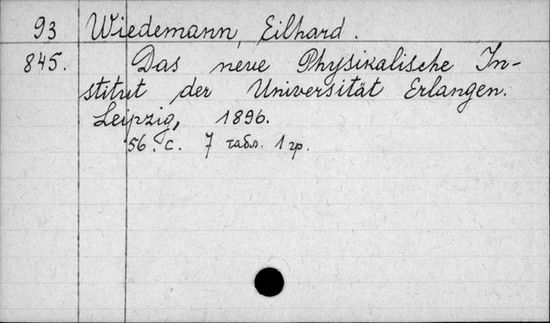 93 Wiedemann, Eilhard.
845. Das neue Physikalische In-
stitut der Universität Erlangen.
Leipzig, 1896.
56. с. 7 табл. 1 гр.